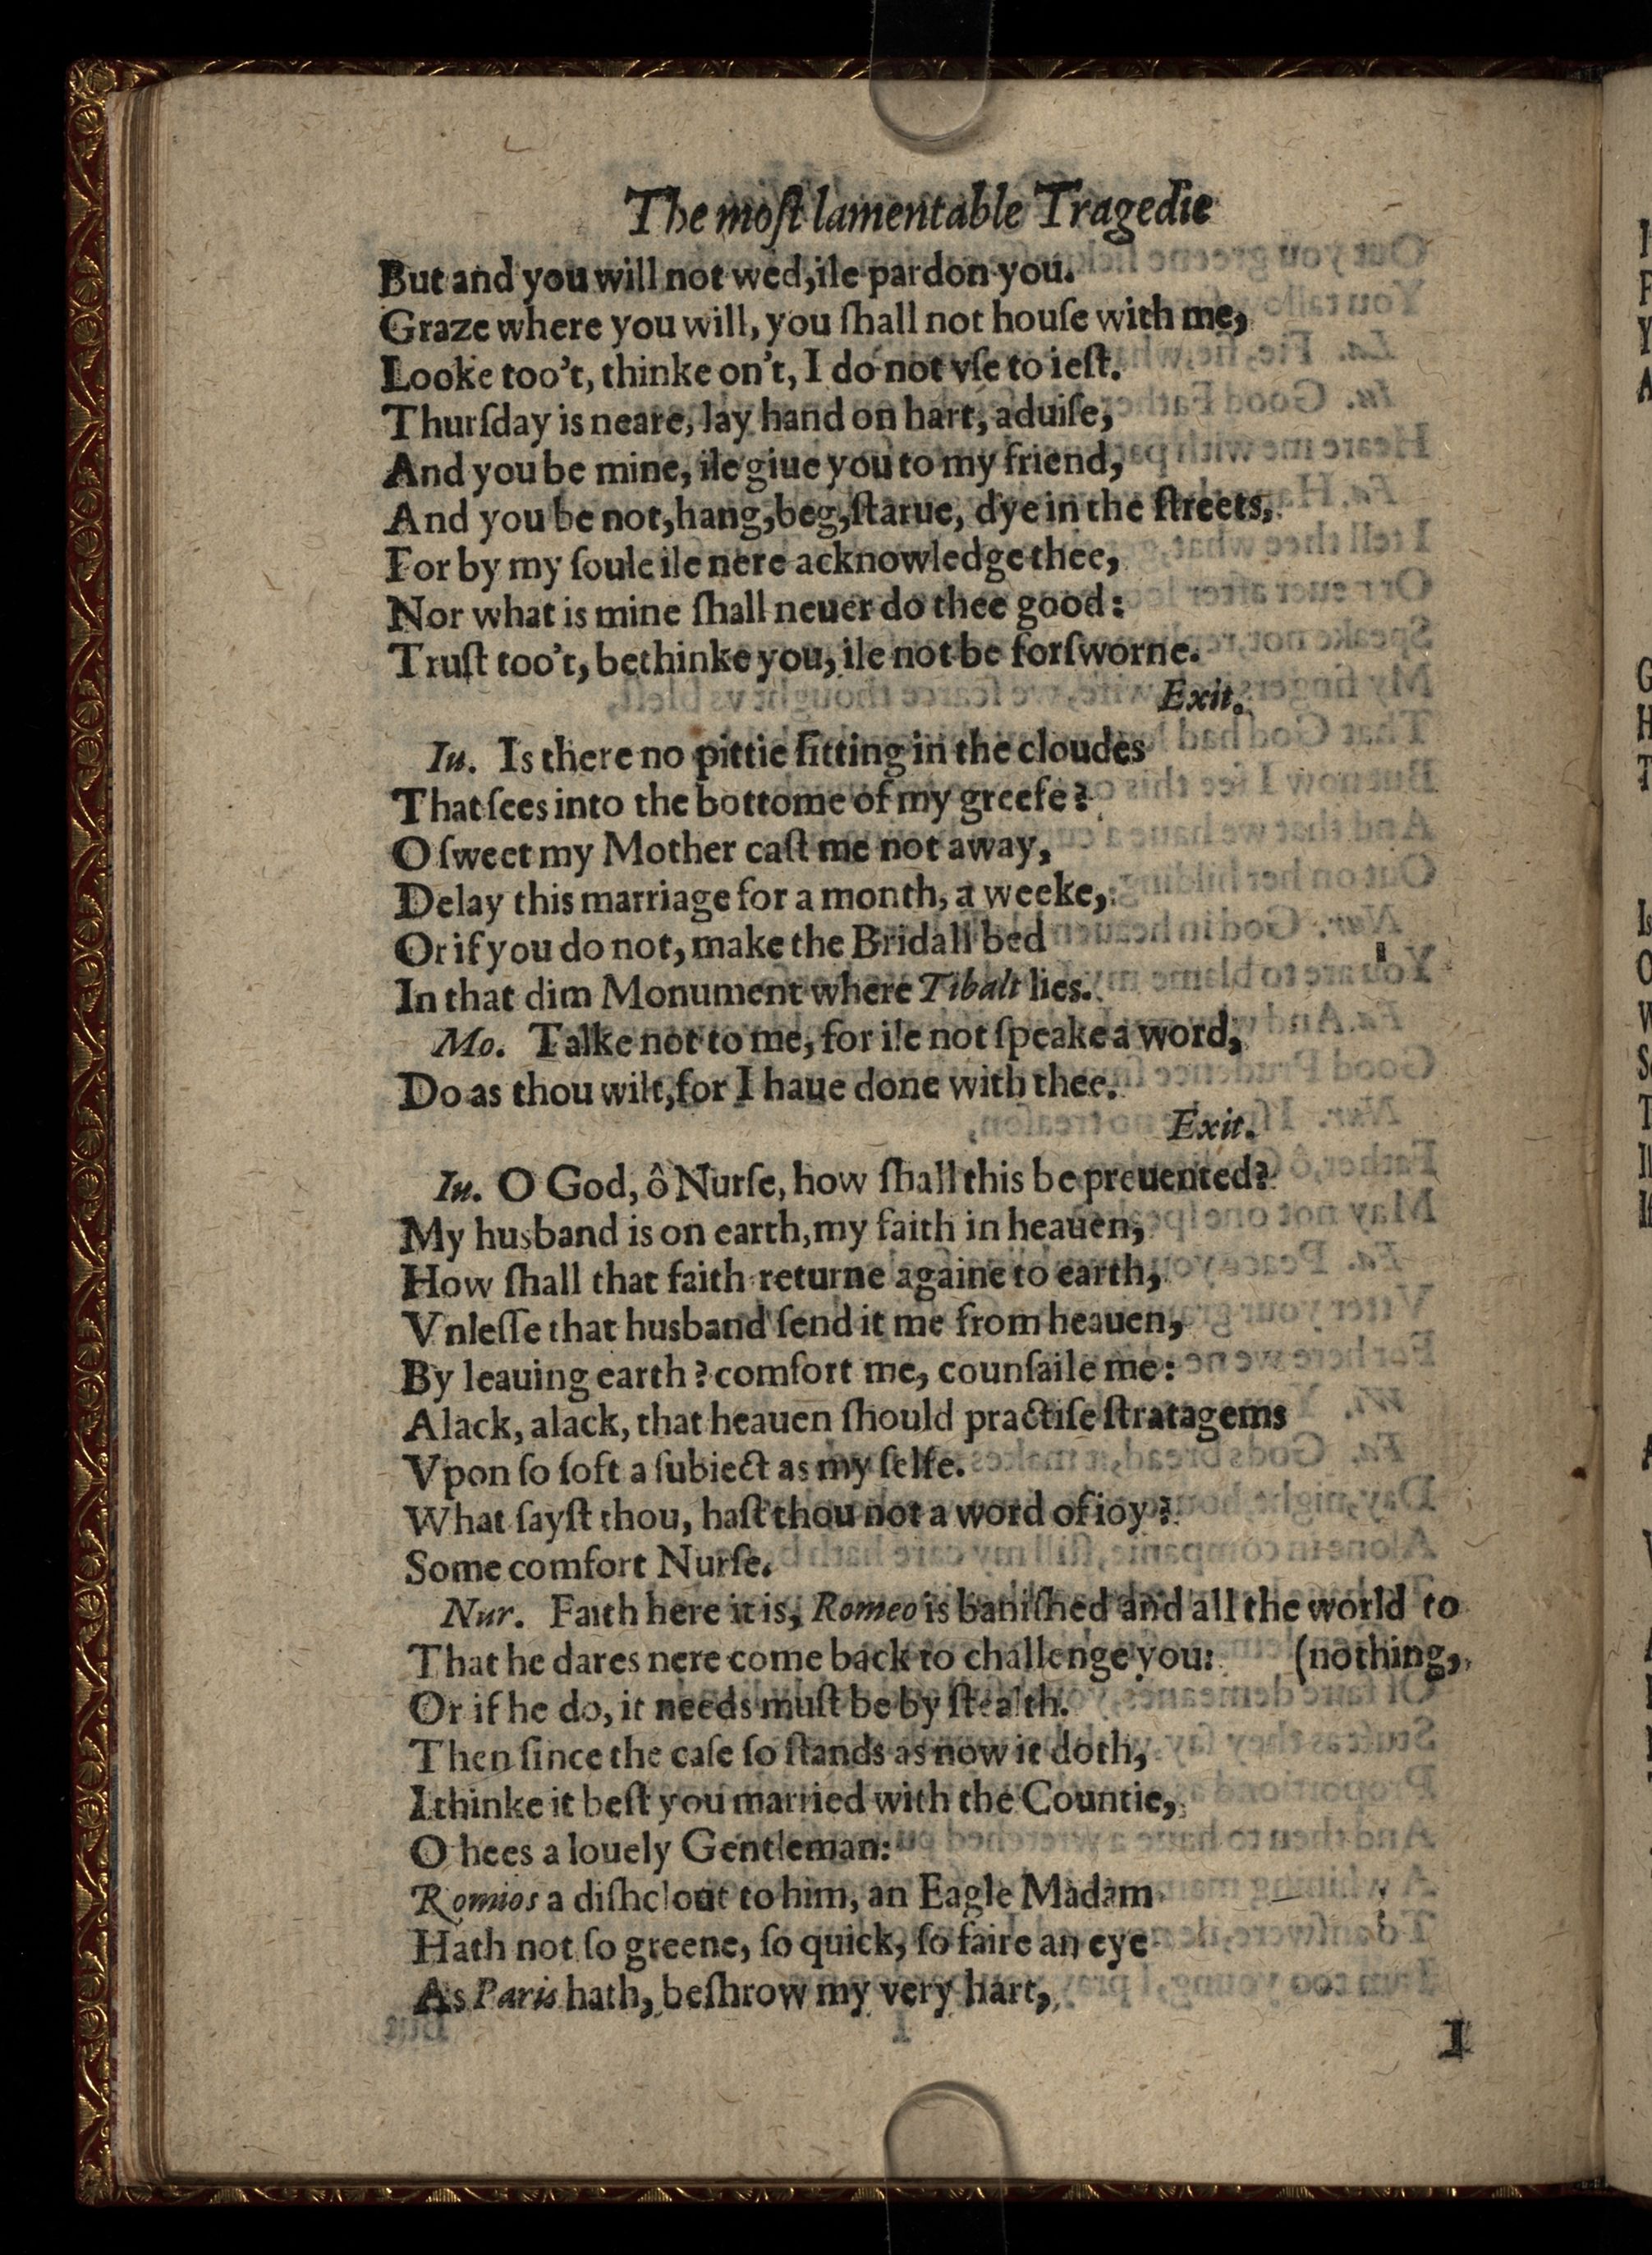 The moſt lamentable Tragedie
But and you will not wed, ile pardon you.
Graze where you will, you ſhall not houſe with me,
Looke too't, thinke on't, I do not vſe to ieſt.
Thurſday is neare, lay hand on hart, aduiſe,
And you be mine, ile giue you to my friend,
And you be not, hang, beg, ſtarue, dye in the ſtreets,
For by my ſoule ile nere acknowledge thee,
Nor what is mine ſhall neuer do thee good:
Truſt too't, bethinke you, ile not be forſworne.
Exit.
Iu. Is there no pittie ſitting in the cloudes
That ſees into the bottome of my greefe?
O ſweet my Mother caſt me not away,
Delay this marriage for a month, a weeke,
Or if you do not, make the Bridall bed
In that dim Monument where Tibalt lies.
Mo. Talke not to me, for ile not ſpeake a word,
Do as thou wilt, for I haue done with thee.
Exit.
Iu. O God, ô Nurſe, how ſhall this be preuented?
My husband is on earth, my faith in heauen,
How ſhall that faith returne againe to earth,
Vnleſſe that husband ſend it me from heauen,
By leauing earth? comfort me, counſaile me:
Alack, alack, that heauen ſhould practiſe ſtratagems
Vpon ſo ſoft a ſubiect as my ſelfe.
What ſayſt thou, haſt thou not a word of ioy?
Some comfort Nurſe.
Nur. Faith here it is, Romeo is baniſhed and all the world to
That he dares nere come back to challenge you: (nothing,
Or if he do, it needs muſt be by ſtealth.
Then ſince the caſe ſo ſtands as now it doth,
I thinke it beſt you married with the Countie,
O hees a louely Gentleman:
Romios a diſhclout to him, an Eagle Madam
Hath not ſo greene, ſo quick, ſo faire an eye
As Paris hath, beſhrow my very hart,
I